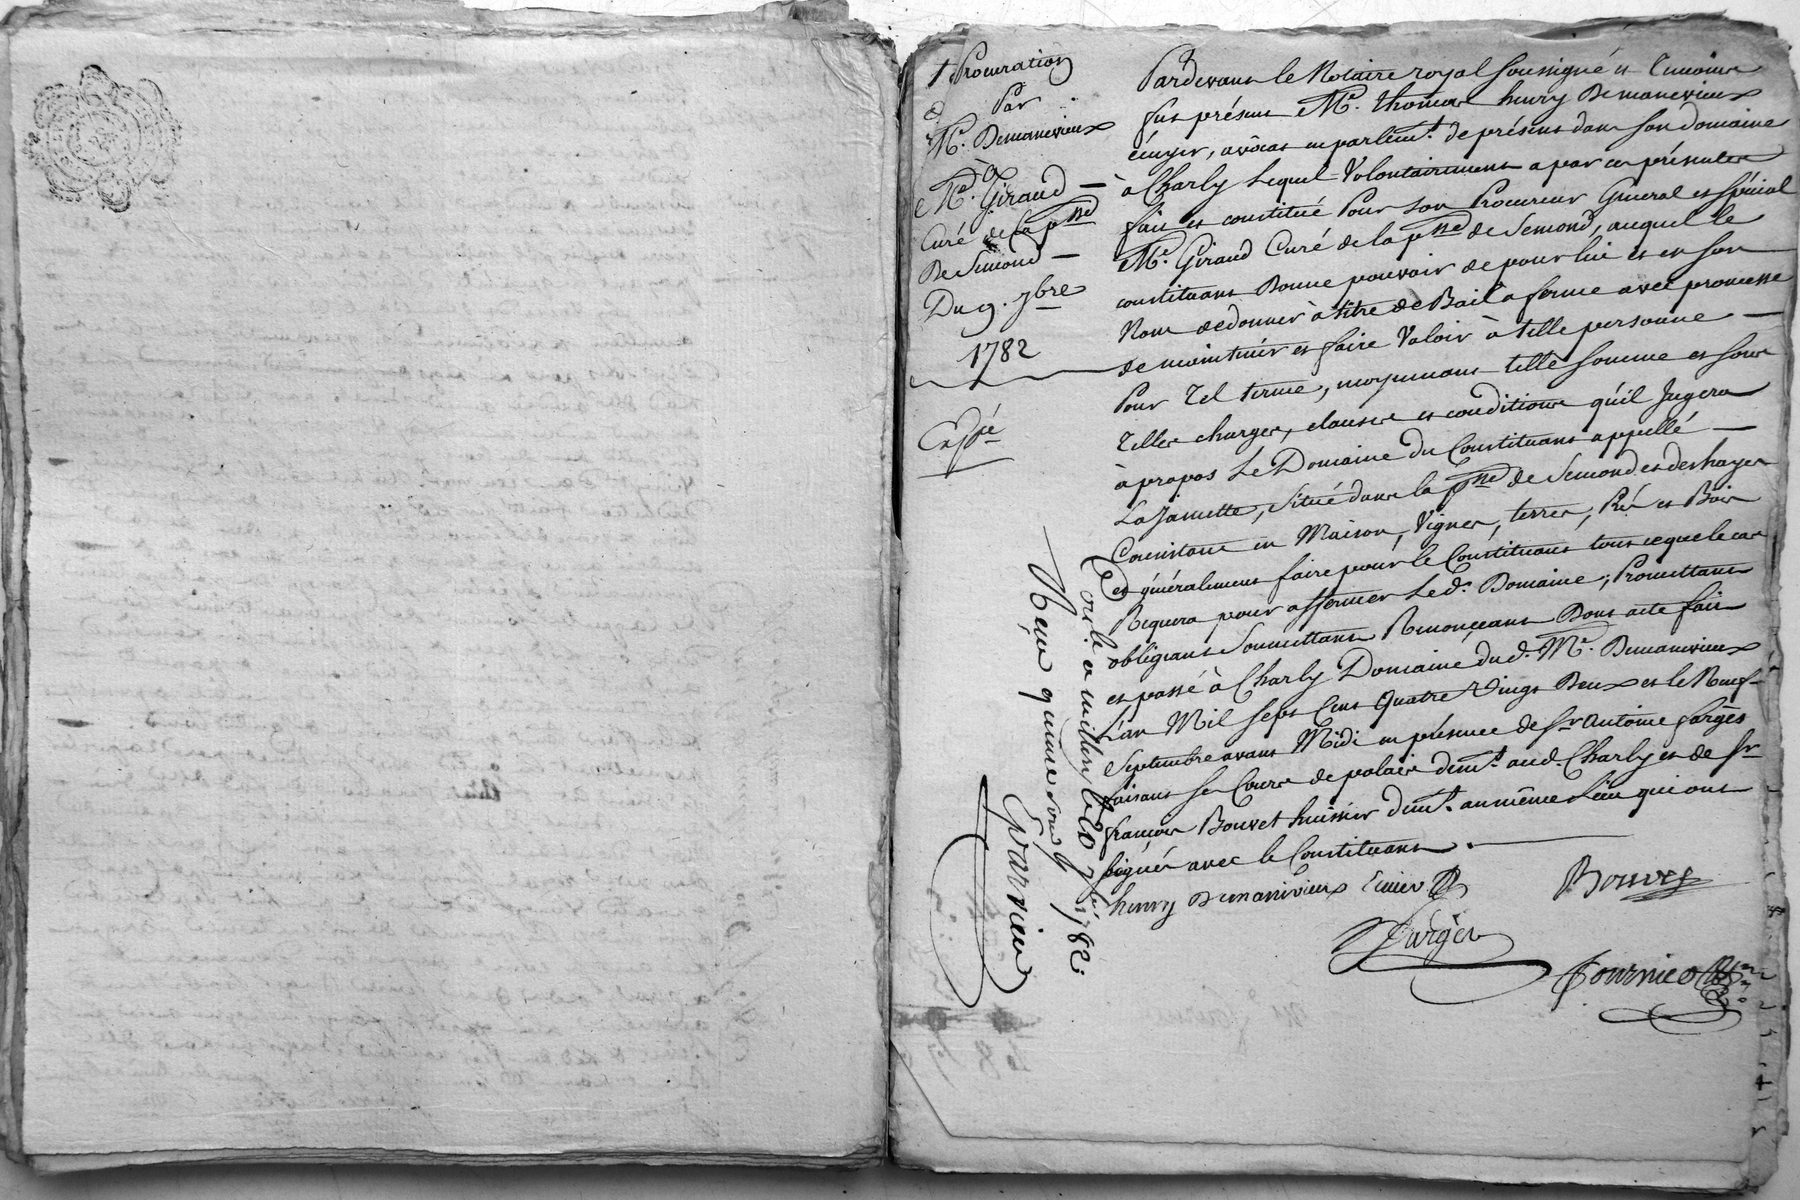 Procuration
Par
Mr. Demanevieux
à
Mr. Giraud —
Curé de la psse
De Semond —
Du 9. 7bre
1782
Expé
Pardevant le Notaire royal soussigné et temoins
fut présent Mr. thomas henry Demanevieux
écuyer, avocat en parlemt. de présent dans son domaine
à Charly Lequel Volontairement a par ces présentes
fait et constitué Pour son Procureur General et spécial
Mr. Giraud Curé de la psse de Semond, auquel le
constituant Donne pouvoir de pour lui et en son
Nom de donner à titre de Bail a ferme avec promesse
de maintenir et faire Valoir à telle personne —
Pour Tel terme, moyennant telle somme et sous
telles charges, clauses et conditions qu'il Jugera
à propos Le Domaine du Constituant appellé —
La Jamette, situé dans la psse de Semond et des hayes
Consistant en Maison, Vignes, terres, Pré et Bois
et généralement faire pour le Constituant tout ce que le cas
Requera pour affermer Led. Domaine; Promettant
obligeant Soumettant Renonçeant Dont acte fait
et passé à Charly Domaine dud. Mr. Demanevieux
L'an Mil sept Cent Quatre Vingt Deux et le Neuf
Septembre avant Midi en présence de Sr. Antoine fargès
faisant ses Cours de palais demt. aud. Charly et de Sr
françois Bouvet huissier demt. au même Lieu qui ont
signé avec le Constituant. —
henry Demanevieux
Bouvet
Farges
Fournier
Cont.le a millery le 20 7bre 1782.
Reçu quinze sous
Eparvier